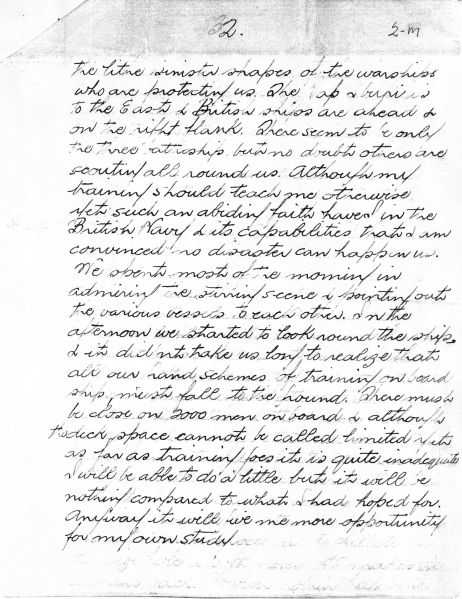 32.
2-M
the lithe sinister shapes of the warships
who are protecting us. The Jap is
to the East & British ships are ahead &
on the right flank. There seem to be only
the three warships but no doubt others are
scouting all round us. Although my
training should teach me otherwise
yet such an abiding faith have I in the
British Navy & its capabilities that I am
convinced no disaster can happen us.
We spent most of the morning in
admiring the stirring scene & pointing out
the various vessels to each other. In the
afternoon we started to look round the ship
& it didn't take us long to realize that
all our grand schemes of training on board
ship must fall to the ground. There must
be close on 2000 men on board & although
the deck space cannot be called limited yet
as far as training goes it is quite inadequate
I will be able to do a little but it will be
nothing compared to what I had hoped for.
Anyway it will give me more opportunity
for my own study